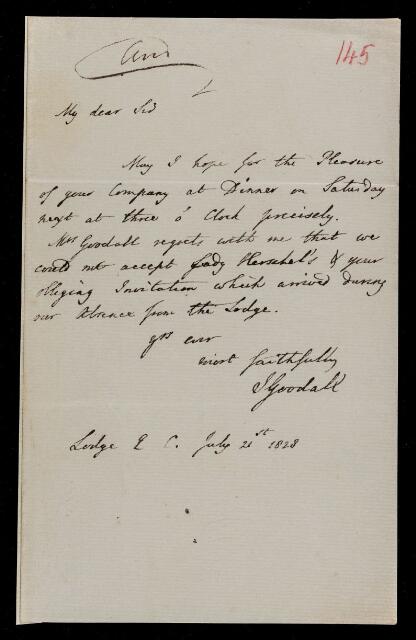 Ans^d
145
My dear Sir
May I hope for the Pleasure
of your Company at Dinner on Saturday
next at three o' Clock precisely.
Mrs Goodall regrets with me that we
could not accept Lady Herschel's & your
obliging Invitation which arrived during
our Absence from the Lodge.
yrs ever
most faithfully
J Goodall
Lodge E C. July 21st 1828